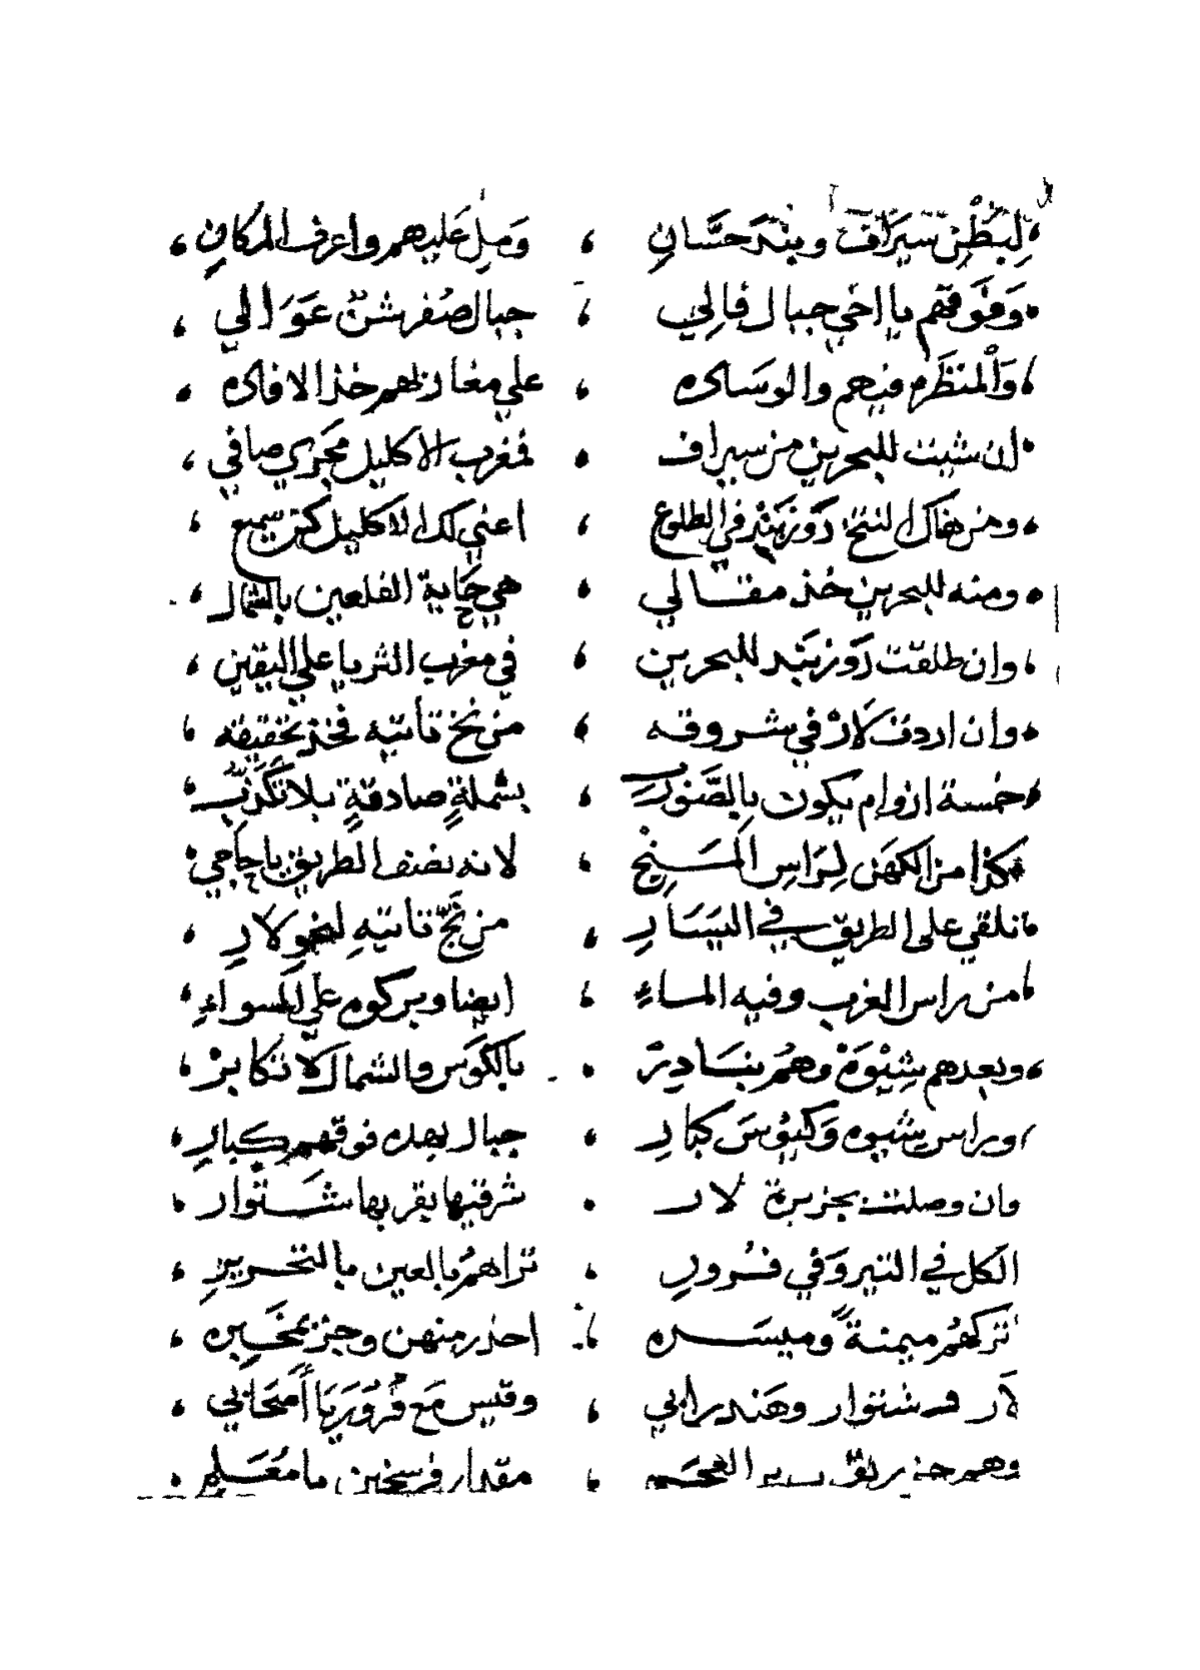 لِبَطْنِ سِيرَافَ وبندَر حَسَّانِ ، وَمِل عَليهم واعرف المكانِ ،
وَفَوقهم يا اخي جبال فالِي ، جبال صُفر شنّ عَوَالي ،
وَالمنظَرَه فيهم والوسَاكره ، علي مغازلهم خذ الافاكره ،
ان شيت للبحرين من سيراف ، فمغرب الاكليل مَجرَي صافي ،
ومن هناك النتخ دَوزبَنْد في الطلوع ، اعني لك الاكليل كن سميع ،
ومنه للبحرين خُذ مقالي ، هي جَاية القلعين بالشمال ،
وان طلقت دَوزبَند للبحرين ، في مغرب الثريا علي اليقين ،
وان اردت لَارْ في شروقه ، من نخ تاتيه فخذ تحقيقه ،
خمسة ازوام يكون بالصَّنوبِ ، بشملةٍ صادقةٍ بلا تكذُّبِ ،
كذا من الكهَن لِرَاسِ المَسَنِحِ ، لانه نصف الطريق يا حَاجي
تلقي على الطريق في اليَسَارِ ، من نَجٍّ تاتيهِ لنحو لارِ ،
من راس الغرب وفيه الماءِ ، ايضا وبركوه علي السواءِ ،
وبعدهم شِيْوَهْ وهُم بنَادِرْ ، بالكَوَسِ والشمال لَا تكابرْ ،
وبراس شيوه وَكيوُسَ كبَارِ ، جبال بعده فوقهم كبارِ ،
وان وصلت بجزيرة لار ، شرقيها بقربها شَتوار ،
الكل في التير وَفي فُرورِ ، تراهُم بالعين بالتحريرِ ،
تتركهُم ميمنةً وميسَره ، احذر منهن وجز بمَخبره ،
لَار وشتوار وهَندرابي ، وقيس مَع فُرُورَ يا أصحَابي ،
وهم العجَم ، مقدار فرسخين يا مُعَلم ،